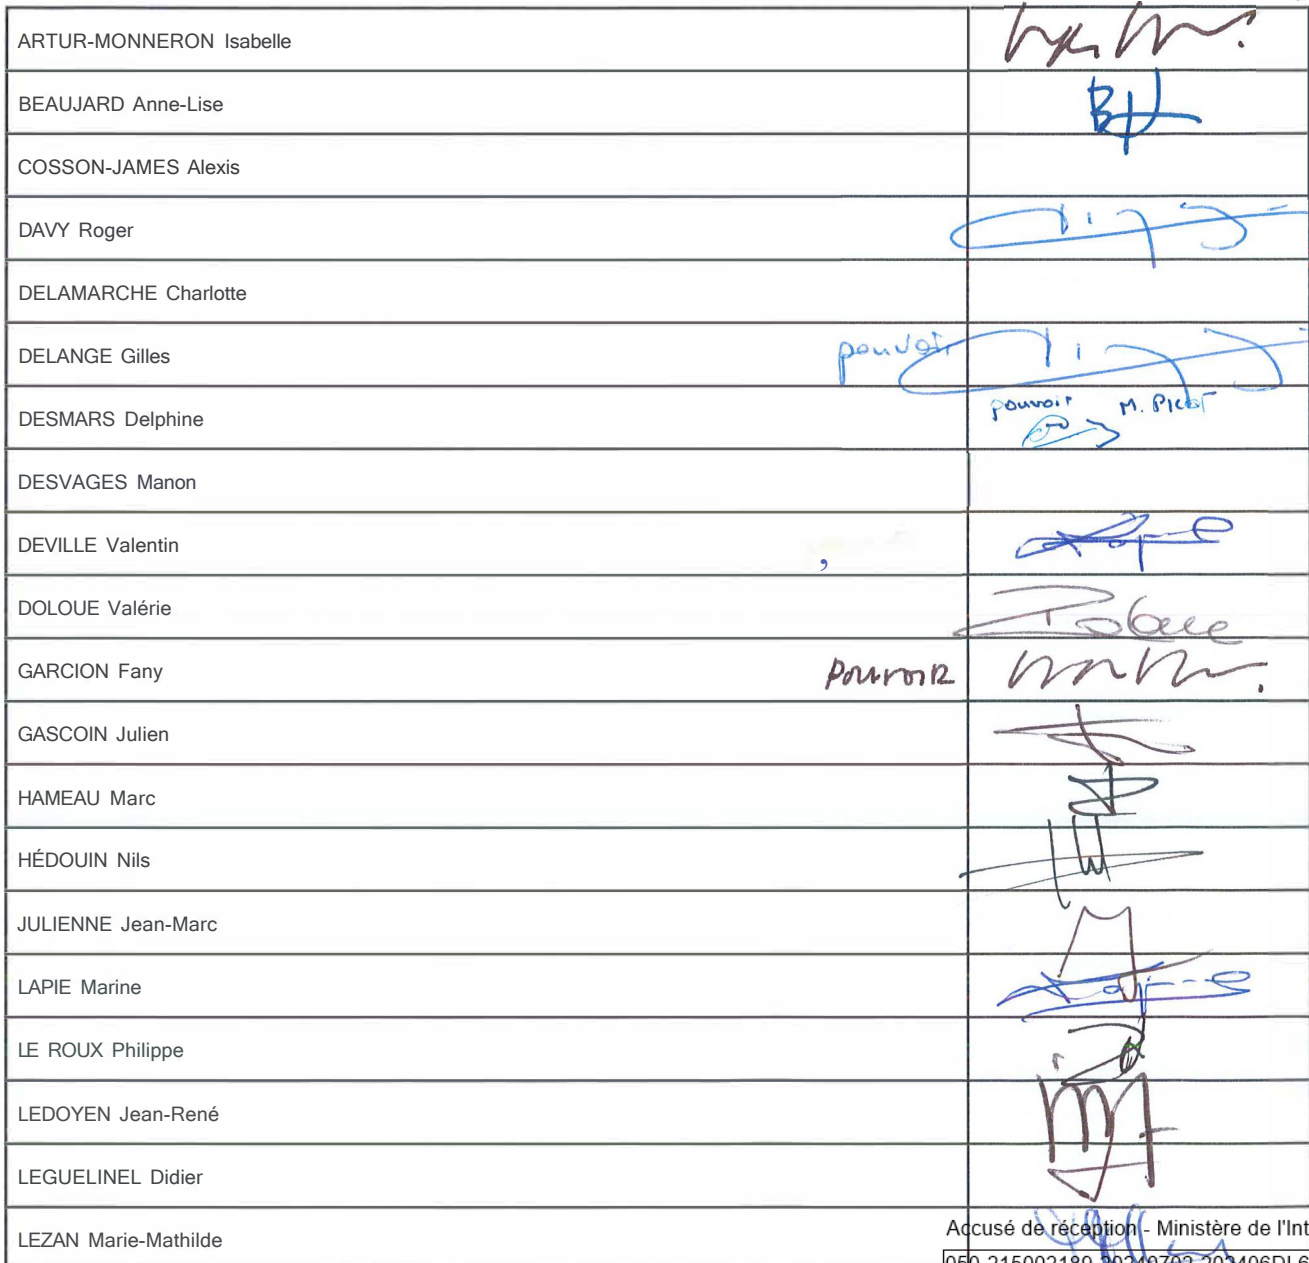 ARTUR-MONNERON Isabelle
BEAUJARD Anne-Lise
COSSON-JAMES Alexis
DAVY Roger
DELAMARCHE Charlotte
DELANGE Gilles pouvoir
DESMARS Delphine pouvoir M. Picot
DESVAGES Manon
DEVILLE Valentin
DOLOUE Valérie
GARCION Fany pouvoir
GASCOIN Julien
HAMEAU Marc
HÉDOUIN Nils
JULIENNE Jean-Marc
LAPIE Marine
LE ROUX Philippe
LEDOYEN Jean-René
LEGUELINEL Didier
LEZAN Marie-Mathilde
Accusé de réception - Ministère de l'Int
050-215002189-20240702-202406DL6